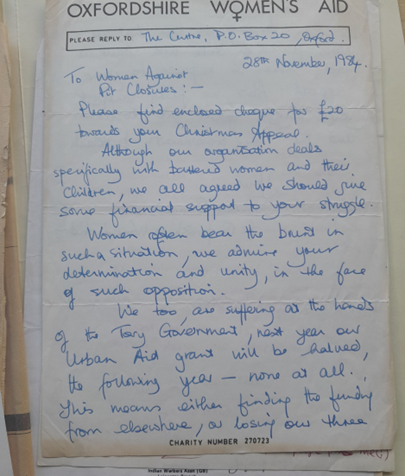 OXFORDSHIRE WOMEN'S AID
PLEASE REPLY TO The Centre, P.O. Box 20, Oxford.
28th November, 1984.
To Women Against
Pit Closures :-
Please find enclosed cheque for £20
towards your Christmas Appeal.
Although our organisation deals
specifically with battered women and their
children, we all agreed we should give
some financial support to your struggle.
Women often bear the brunt in
such a situation, we admire your
determination and unity, in the face
of such opposition.
We too, are suffering at the hands
of the Tory Government, next year our
Urban Aid grant will be halved,
the following year – none at all.
This means either finding the funding
from elsewhere, or losing our three
CHARITY NUMBER 270723
Indian Workers Assn (GB)